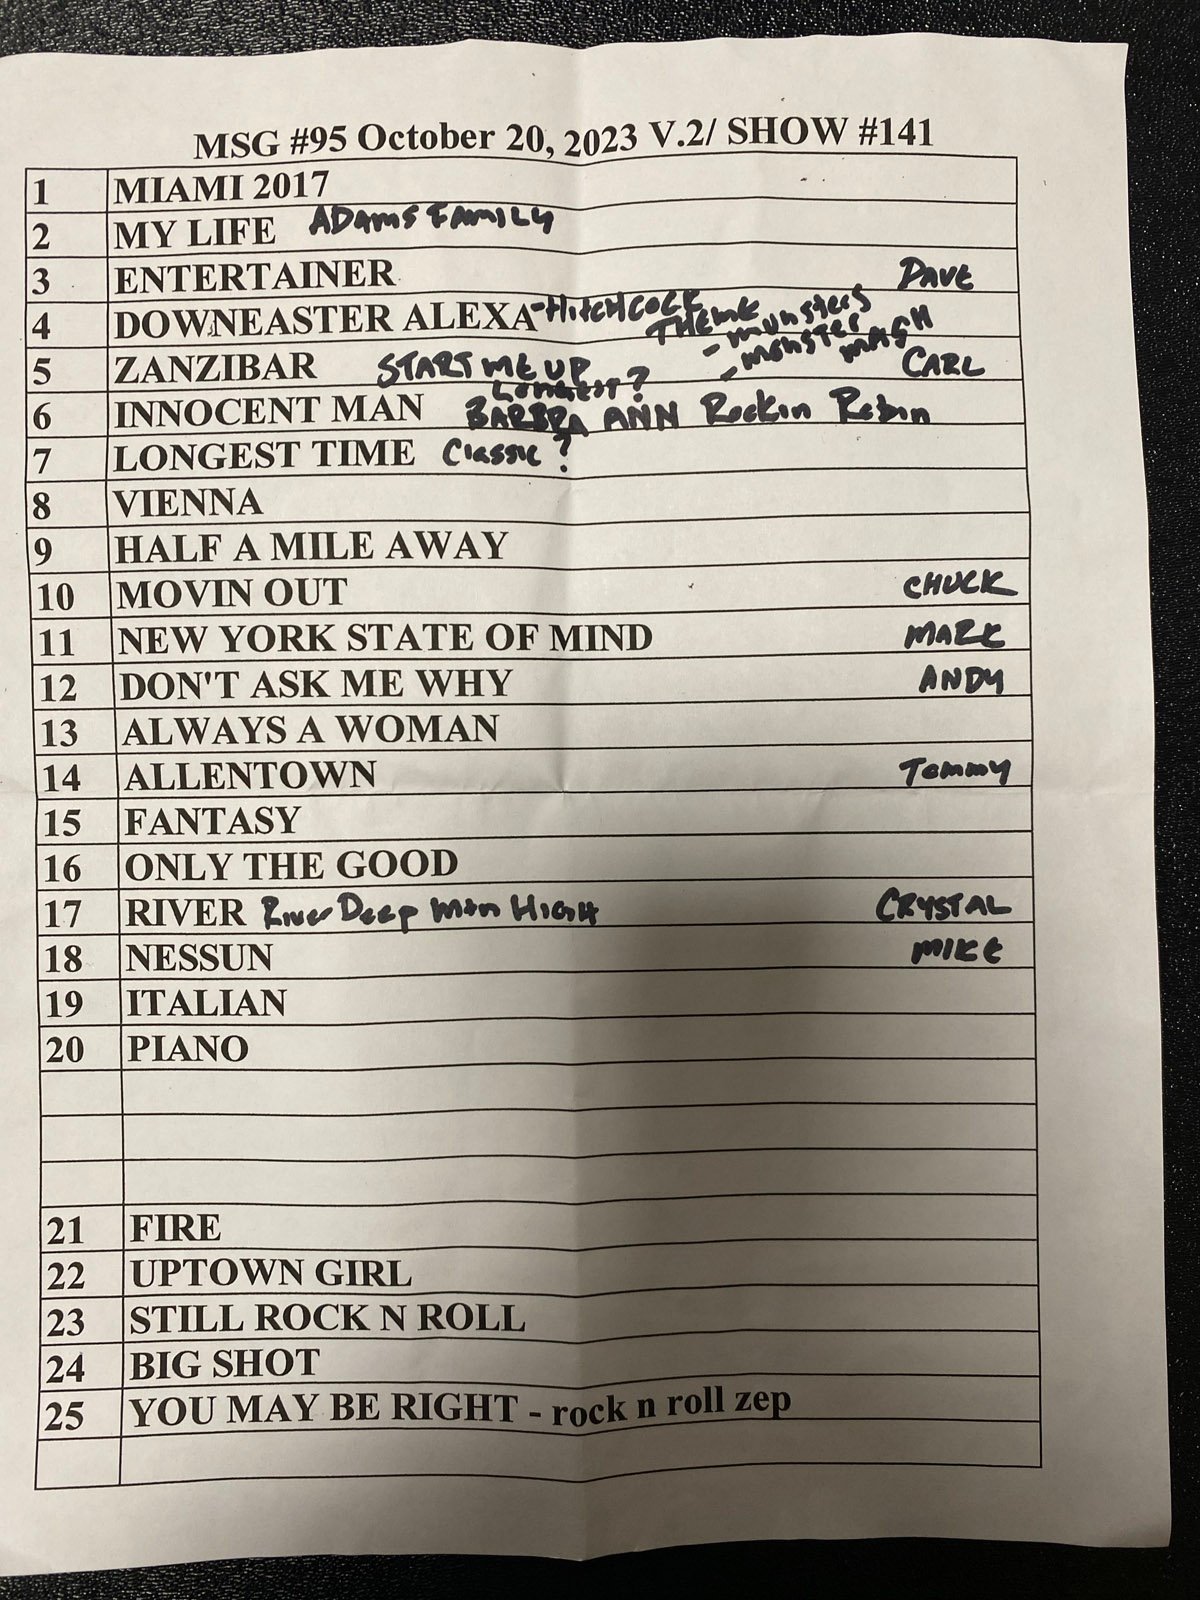 MSG #95 October 20, 2023 V.2/ SHOW #141
1 MIAMI 2017
2 MY LIFE ADAMS FAMILY
3 ENTERTAINER DAVE
4 DOWNEASTER ALEXA -HITCHCOCK THEME
- MUNSTERS
- MONSTER MASH
5 ZANZIBAR START ME UP CARL
LONGEST?
6 INNOCENT MAN BARBRA ANN Rockin Robin
7 LONGEST TIME Classic?
8 VIENNA
9 HALF A MILE AWAY
10 MOVIN OUT CHUCK
11 NEW YORK STATE OF MIND MARK
12 DON'T ASK ME WHY ANDY
13 ALWAYS A WOMAN
14 ALLENTOWN Tommy
15 FANTASY
16 ONLY THE GOOD
17 RIVER River Deep Mtn HIGH CRYSTAL
18 NESSUN MIKE
19 ITALIAN
20 PIANO
21 FIRE
22 UPTOWN GIRL
23 STILL ROCK N ROLL
24 BIG SHOT
25 YOU MAY BE RIGHT - rock n roll zep